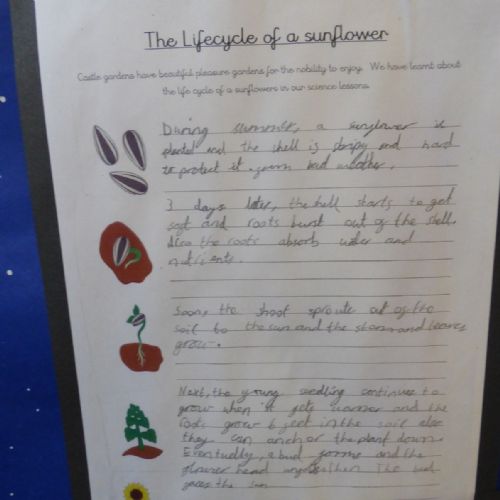 The Lifecycle of a sunflower
Castle gardens have beautiful pleasure gardens for the nobility to enjoy. We have learnt about
the life cycle of a sunflowers in our science lessons.
During summer, a sunflower is
planted and the shell is stripy and hard
to protect it from bad weather.
3 days later, the shell starts to get
soft and roots burst out of the shell.
Also the roots absorb water and
nutrients.
Soon, the shoot sproute out of the
soil to the sun and the stem and leaves
grow.
Next, the young seedling continues to
grow when it gets warmer and the
roots grow 6 feet in the soil also
they can anchor the plant down.
Eventually, a bud forms and the
flower head then The bud
faces the sun